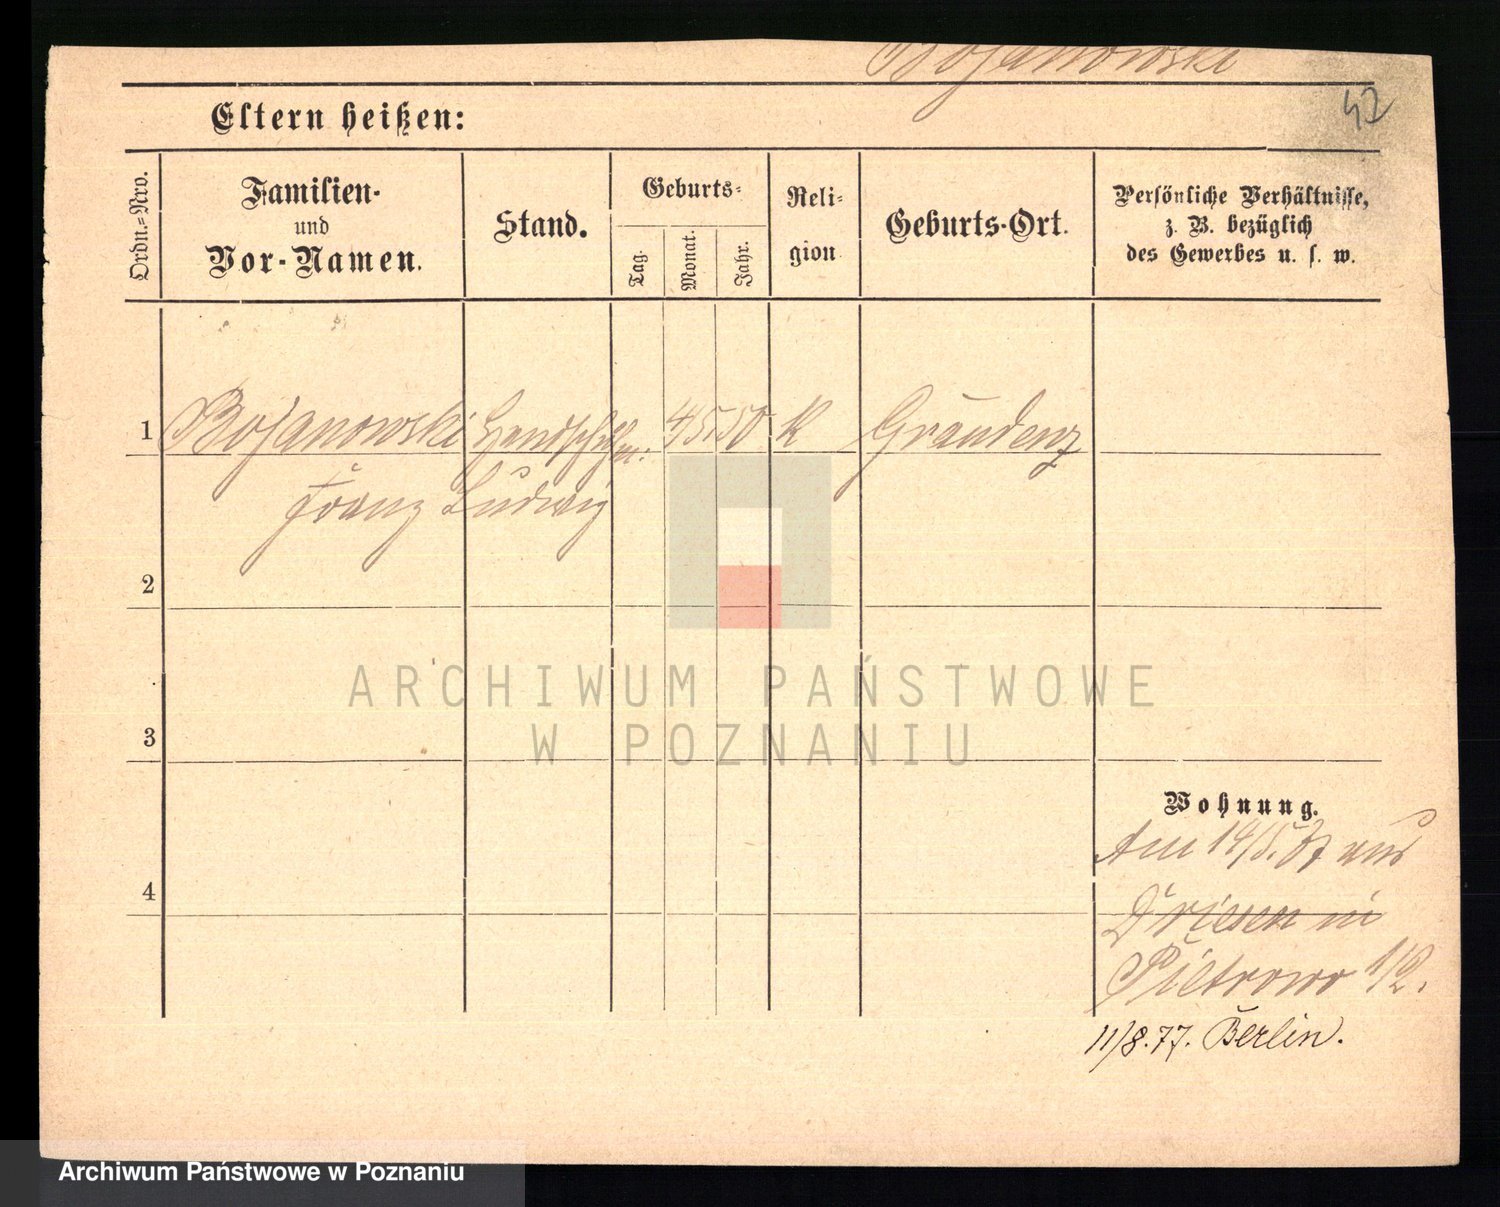 Bojanowski
42
Eltern heißen:
Ordn.=Nro.
Familien-
und
Vor-Namen.
Stand.
Geburts=
Tag.
Monat.
Jahr.
Reli-
gion
Geburts-Ort.
Persönliche Verhältnisse,
z. B. bezüglich
des Gewerbes u. s. w.
1 Bojanowski Handschuhm: 4/5. 50 K Graudenz
Franz Ludwig
2
3
4
Wohnung.
Am 14/5. aus
Driesen in
Pietrowo 1/2.
11/8. 77. Berlin.
ARCHIWUM PAŃSTWOWE
W POZNANIU
Archiwum Państwowe w Poznaniu